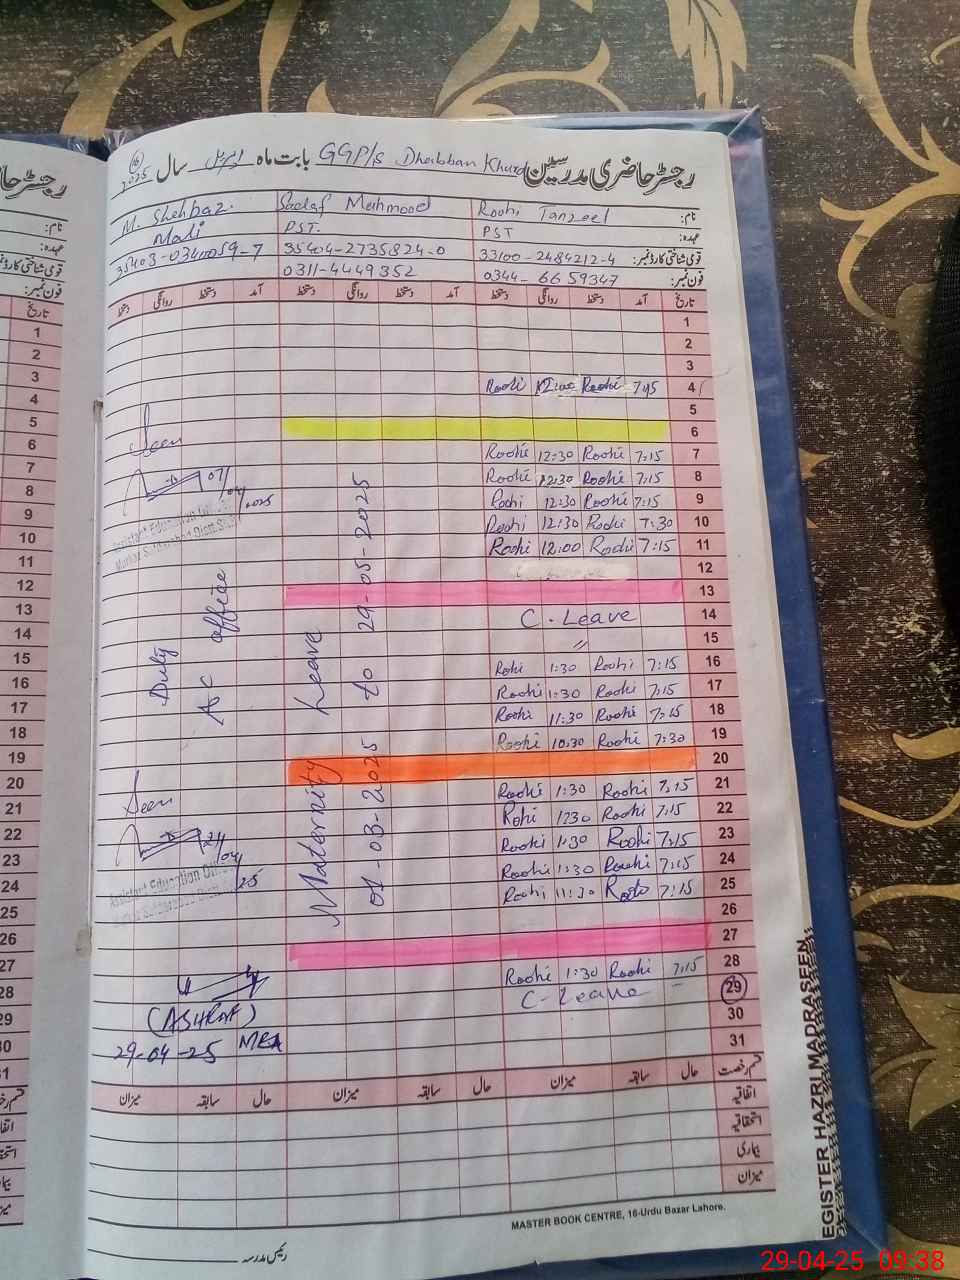 رجسٹر حاضری مدرسین GGP/s Dhabban Khurd بابت ماہ اپریل سال 2025
نام: Roohi Tanzeel Sadaf Mehmood M. Shehbaz.
عہدہ: PST PST. Mali
قومی شناختی کارڈ نمبر: 33100-2484212-4 35404-2735824-0
فون نمبر: 0344-6659347 0311-4449352
تاریخ آمد دستخط روانگی دستخط آمد دستخط روانگی دستخط آمد دستخط روانگی دستخط
1
2
3
4 7:45 Roohi 12:00 Roohi
5
6
7 7:15 Roohi 12:30 Roohi
8 7:15 Roohi 12:30 Roohi
9 7:15 Roohi 12:30 Roohi
10 7:30 Roohi 12:30 Roohi
11 7:15 Roohi 12:00 Roohi
12
13
14 C. Leave
15 〃
16 7:15 Roohi 1:30 Roohi
17 7:15 Roohi 1:30 Roohi
18 7:15 Roohi 11:30 Roohi
19 7:30 Roohi 10:30 Roohi
20
21 7:15 Roohi 1:30 Roohi
22 7:15 Roohi 1:30 Rohi
23 7:15 Roohi 1:30 Roohi
24 7:15 Roohi 1:30 Roohi
25 7:15 Roohi 11:30 Roohi
26
27
28 7:15 Roohi 1:30 Roohi
29 C-Leave
30
31
Maternity Leave
01-03-2025 to 29-05-2025
Duty
AC office
Seen
07/04/2025
Assistant Education Officer
Seen
24/04/25
Assistant Education Officer
(ASHRAF)
29-04-25 MEA
قسم رخصت حال سابقہ میزان حال سابقہ میزان حال سابقہ میزان
اتفاقیہ
استحقاقیہ
بیماری
میزان
MASTER BOOK CENTRE, 16-Urdu Bazar Lahore.
رئیس مدرسہ
EGISTER HAZRI MADRASEEN
رجسٹر حا
1
2
3
4
5
6
7
8
9
10
11
12
13
14
15
16
17
18
19
20
21
22
23
24
25
26
27
28
29
30
31
29-04-25 09:38